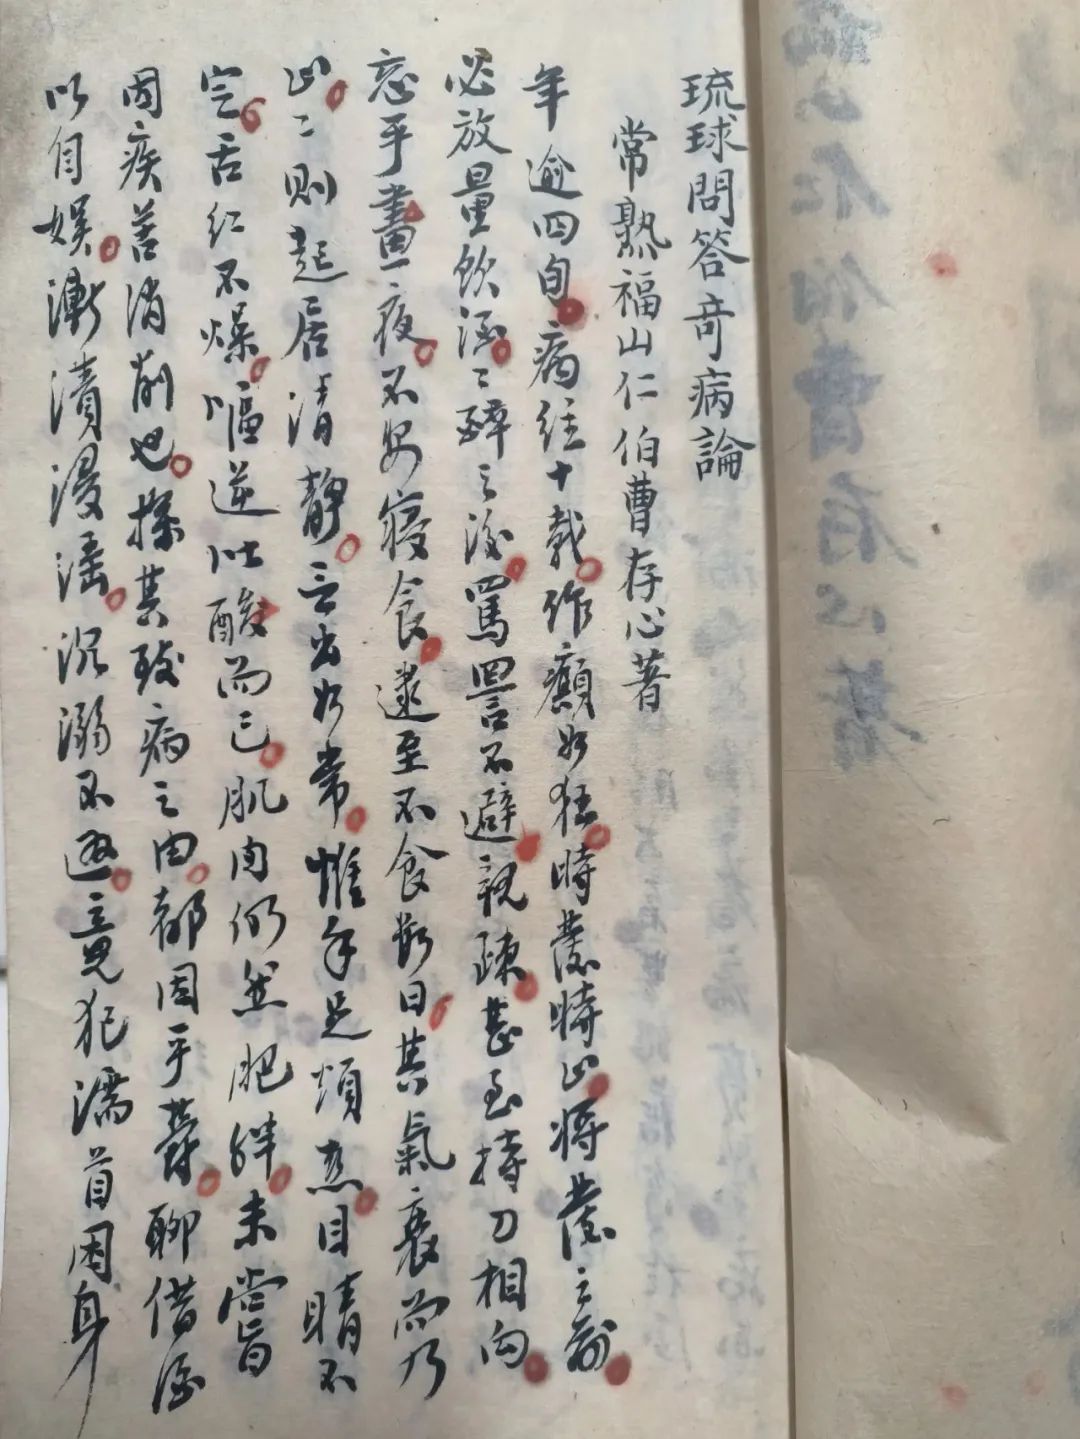 琉球問答奇病論
常熟福山仁伯曹存心著
年逾四旬病经十载作癫如狂時發時止將發之前
必放量飲酒〻醉之後罵詈不避親疎甚至持刀相向
忘乎晝夜不安寢食逮至不食数日其氣衰而乃
止〻则起居清靜言出如常惟手足煩熱目睛不
定舌红不燥嘔逆吐酸而已肌肉仍然肥胖未嘗
因疾善消削也探其致病之由都因乎欝聊借酒
以自娱漸漬漫淫沉溺不返竟犯濡首困身